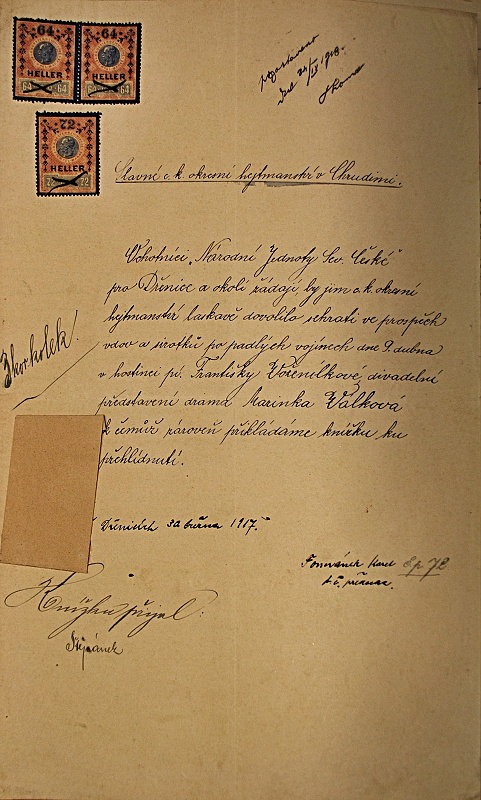 64 64
HELLER HELLER
64 64 64 64
72
HELLER
72 72
24/IX 1918.
Slavné c. k. okresní hejtmanství v Chrudimi.
Ochotníci „Národní Jednoty Sev. České"
pro Dřenice a okolí žádají by jim c. k. okresní
hejtmanství laskavě dovolilo sehrati ve prospěch
vdov a sirotků po padlých vojínech dne 9. dubna
v hostinci pí. Františky divadelní
představení drama Marinka Válková
K čemuž zároveň přikládáme knížku ku
přehlídnutí.
3 kor kolek!
Dřenicích 30 března 1917.
Karel
t. č.
Knížku přijal:
Štěpánek